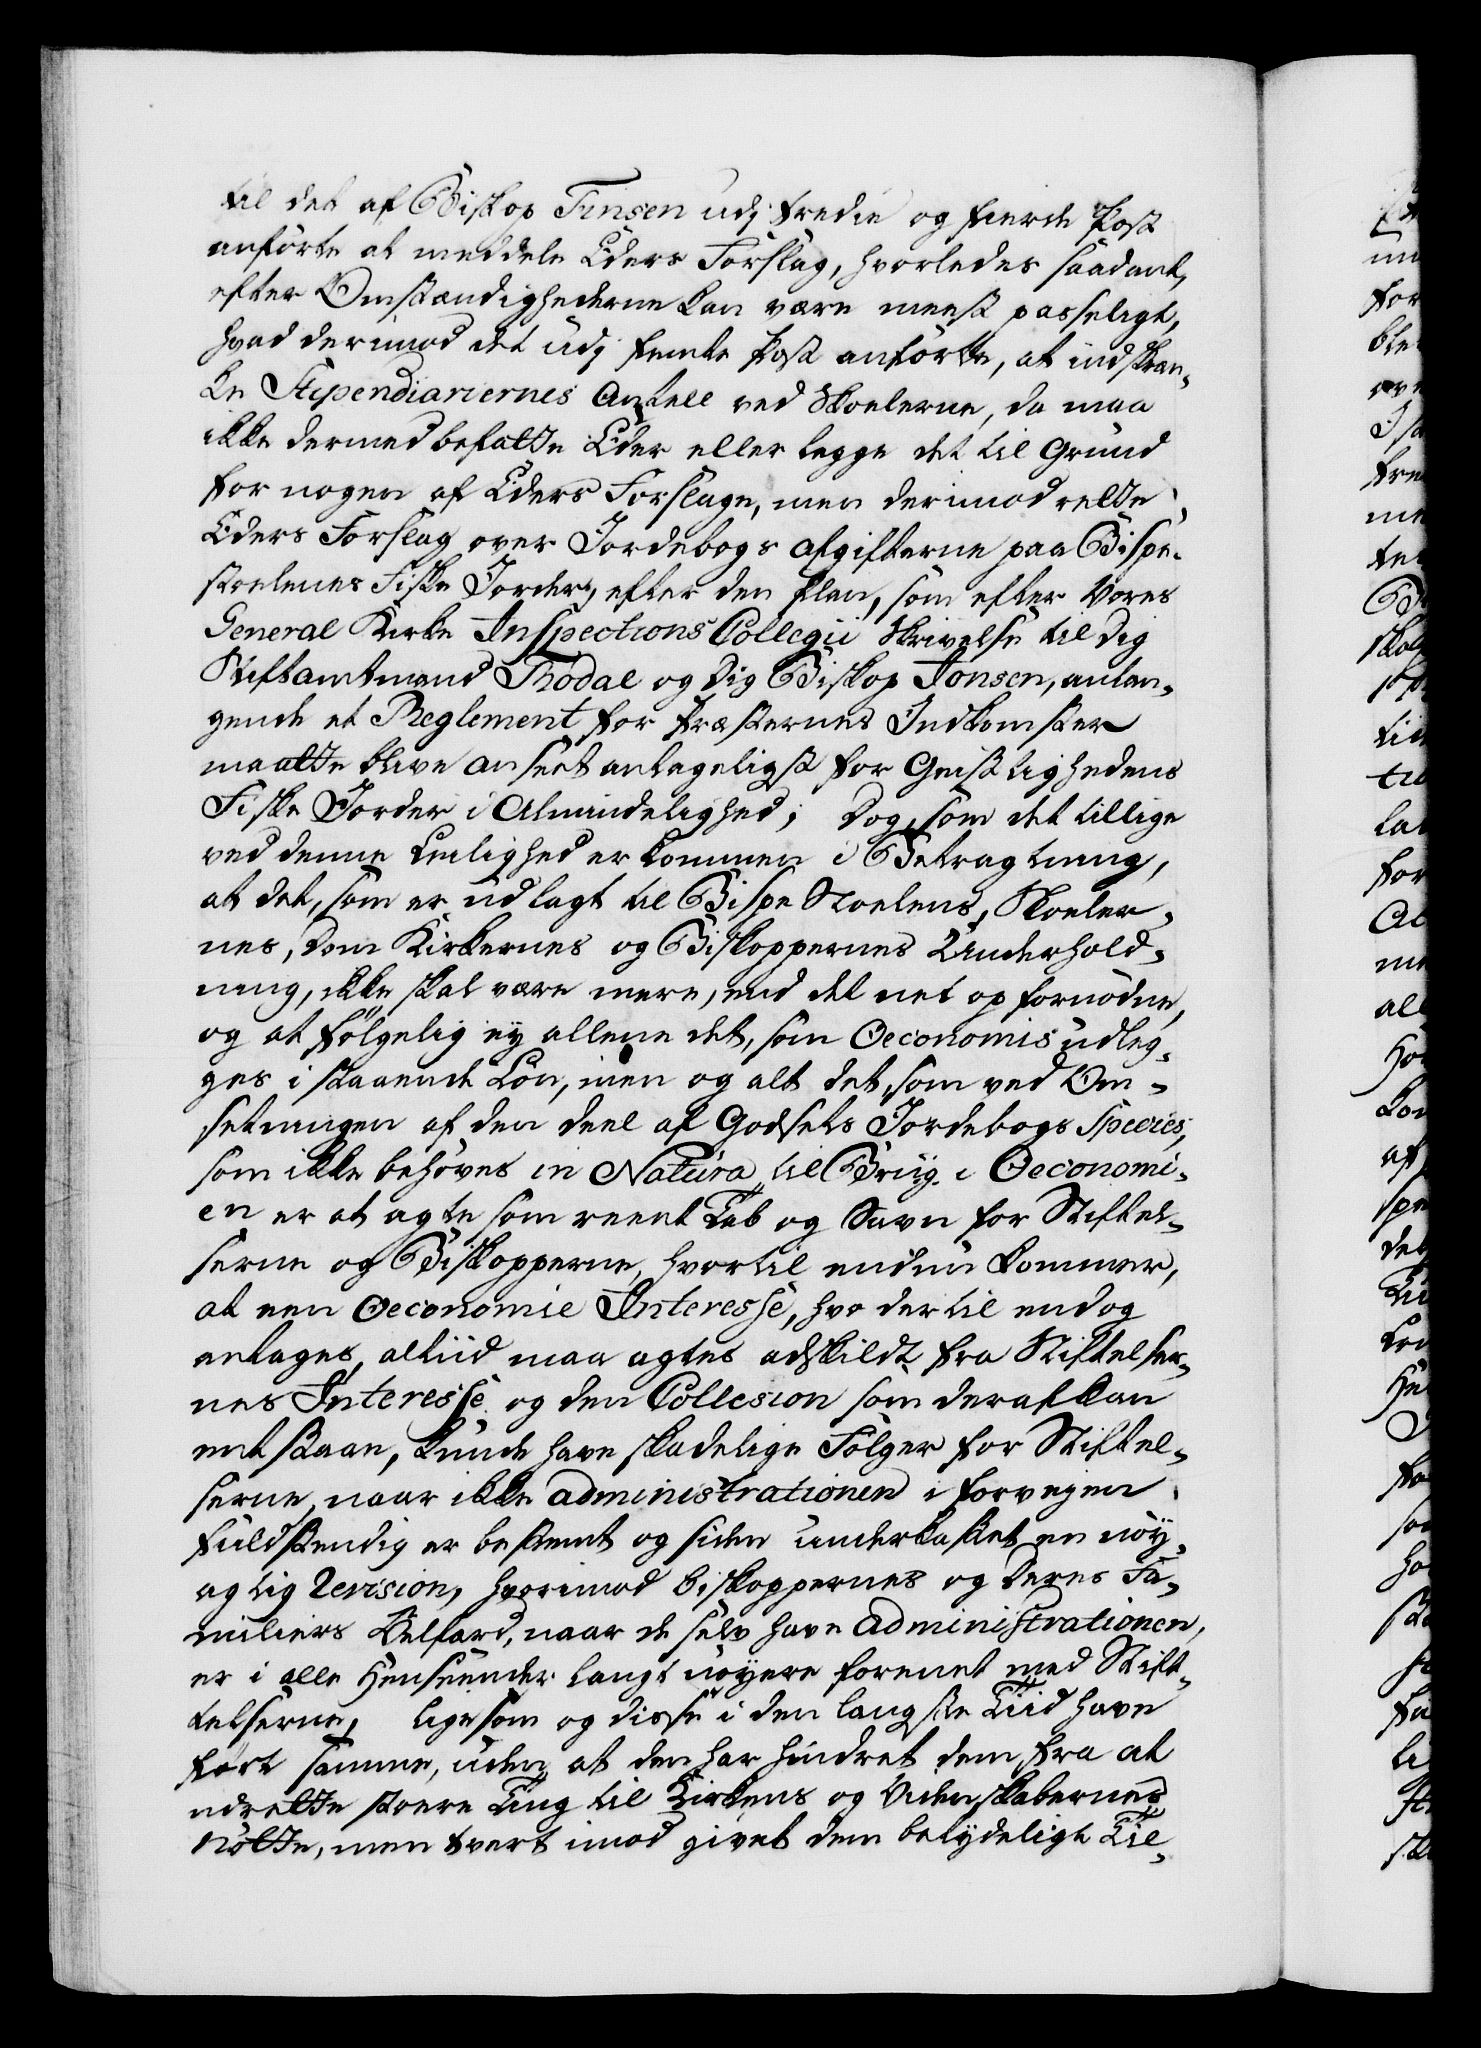 til det af Biskop Finsen udj tredie og fierde Post
anförte at meddele Eders Forslag, hvorledes saadant,
efter Omstændighederne kan være meest passeligt,
hvad derimod det udj femte Post anförte, at indskræn-
ke Stipendiariernes Antall ved Skolerne, da maa
ikke dermed befatte Eder eller legge det til Grund
for nogen af Eders Forslage, men derimod rette
Eders Forslag over Jordebogs afgifterne paa Bispe-
stoelenes Fiske Jorder, efter den Plan, som efter Vores
General Kirke Inspections Collegii Skrivelse til Dig
Stiftamtmand Thodal og Dig Biskop Jonsen, anlan-
gende et Reglement for Præsternes Indkomster
maatte blive anseet antageligst for Geistlighedens
Fiske Jorder i Almindelighed; Dog, som det tillige
ved denne Leilighed er kommen i Betragtning,
at det, som er udlagt til Bispe Stoelens, Skoeler-
nes, Dom Kirkernes og Biskoppernes Underhold-
ning, ikke skal være mere, end det net op fornödne,
og at fölgelig ey allene det, som Oeconomis udleg-
ges i staaende Lön, men og alt det, som ved Om-
setningen af den deel af Godsets Jordebogs Species,
som ikke behöves in Natura til Brug i Oeconomi-
en er at agte som reent Tab og Savn for Stiftel-
serne og Biskopperne, hvortil endnu kommer,
at een Oeconomie Interesse, hvo der til endog
antages, altiid maa agtes adskildt fra Stiftelser-
nes Interesse og den Collesion som deraf kan
entstaae, kunde have skadelige Fölger for Stiftel-
serne, naar ikke administrationen i forvejen
fuldstendig er bestemt og siden underkastet en nöy-
agtig Revision, hvorimod Biskoppernes og deres Fa-
miliers Velfard, naar de selv have Administrationen,
er i alle Henseender langt nöyere forenet med Stift-
telserne, ligesom og disse i den langste Tiid have
fört samme, uden at den har hindret dem fra at
udrette store Ting til Kirkens og Videnskabernes
Nötte, men tvert imod givet dem betydeligt Til-